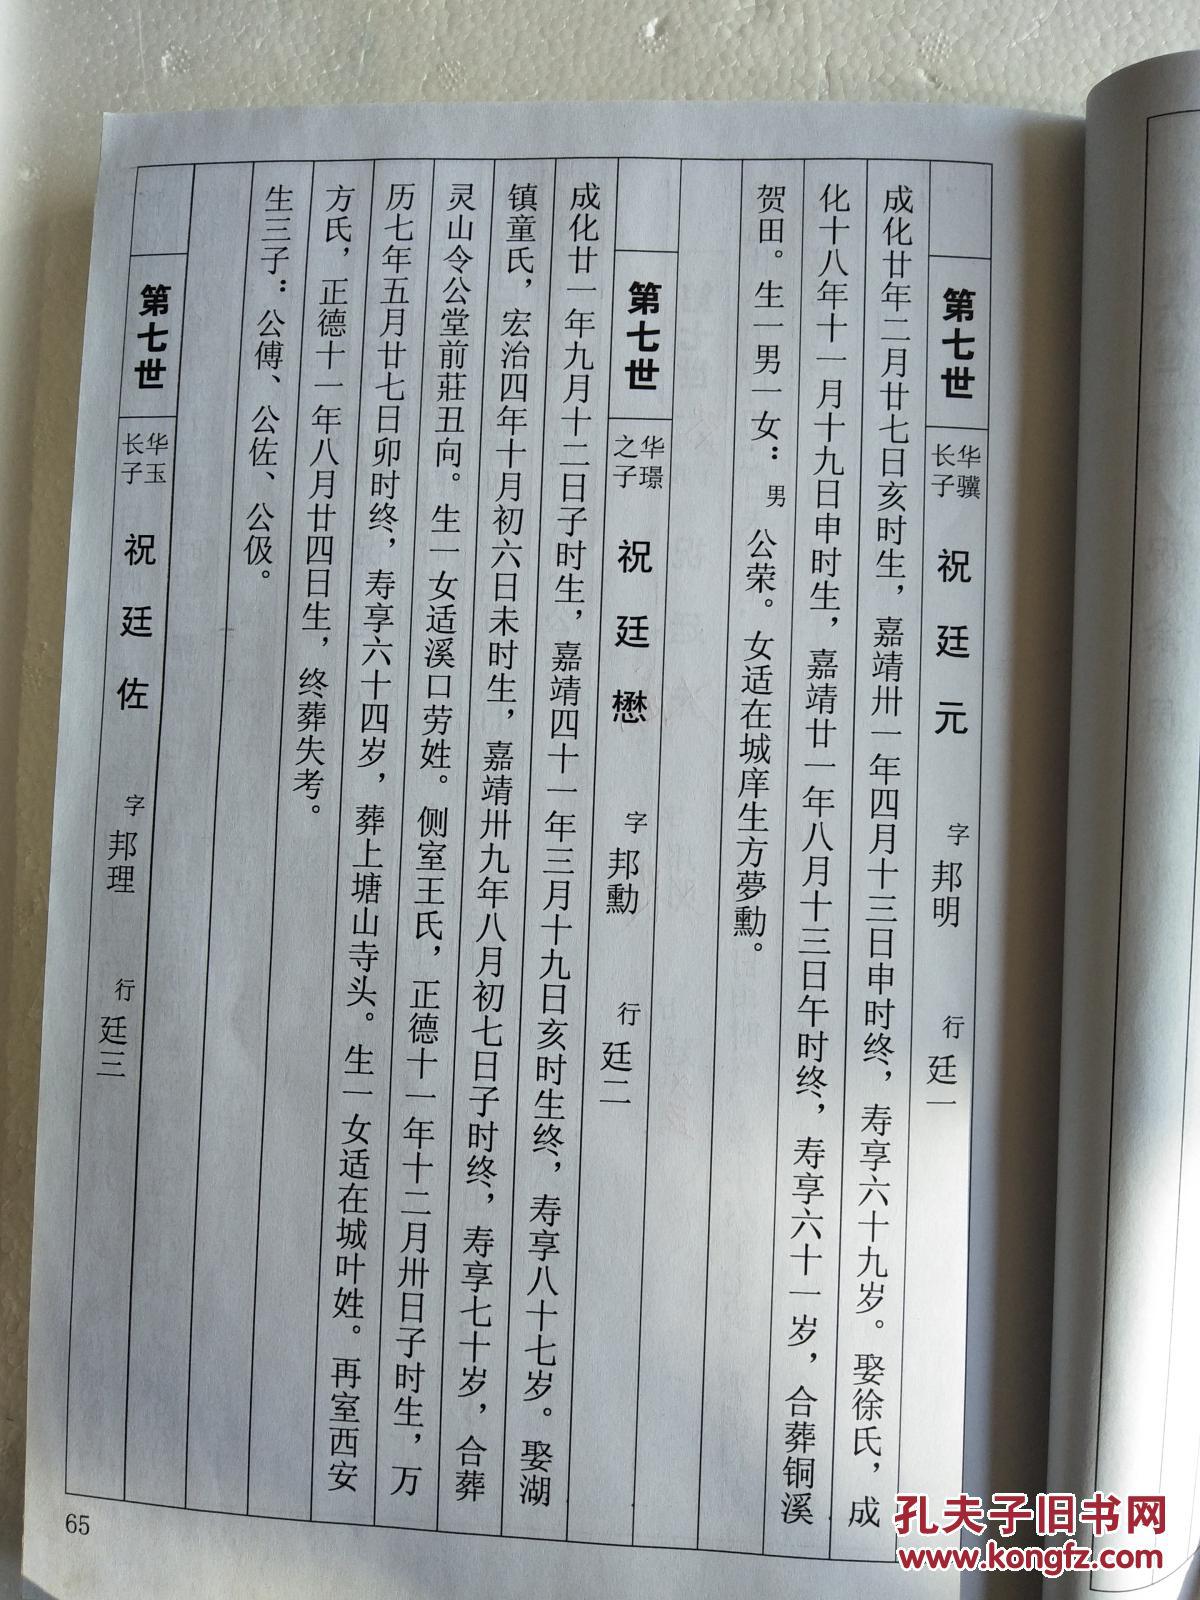 第七世 华骥长子 祝廷元 字 邦明 行 廷一
成化廿年二月廿七日亥时生，嘉靖卅一年四月十三日申时终，寿享六十九岁。娶徐氏，成
化十八年十一月十九日申时生，嘉靖廿一年八月十三日午时终，寿享六十一岁，合葬铜溪
贺田。生一男一女：男 公荣。女适在城庠生方夢勳。
第七世 华璟之子 祝廷懋 字 邦勳 行 廷二
成化廿一年九月十二日子时生，嘉靖四十一年三月十九日亥时生终，寿享八十七岁。娶湖
镇童氏，宏治四年十月初六日未时生，嘉靖卅九年八月初七日子时终，寿享七十岁，合葬
灵山令公堂前莊丑向。生一女适溪口劳姓。侧室王氏，正德十一年十二月卅日子时生，万
历七年五月廿七日卯时终，寿享六十四岁，葬上塘山寺头。生一女适在城叶姓。再室西安
方氏，正德十一年八月廿四日生，终葬失考。
生三子：公傅、公佐、公伋。
第七世 华玉长子 祝廷佐 字 邦理 行 廷三
65
孔夫子旧书网
www.kongfz.com